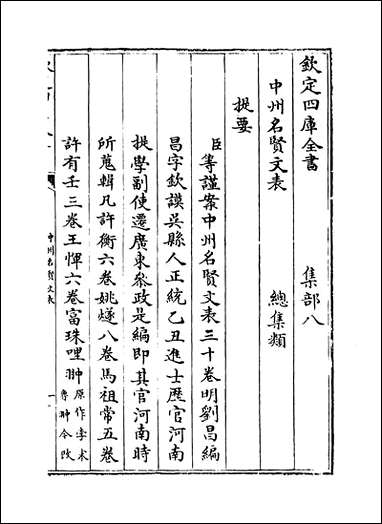 欽定四庫全書　集部八
中州名賢文表　總集類
提要
臣等謹案中州名賢文表三十卷明劉昌編
昌字欽謨吳縣人正統乙丑進士歷官河南
提學副使遷廣東參政是編即其官河南時
所蒐輯凡許衡六卷姚燧八卷馬祖常五卷
許有壬三卷王惲六卷富珠哩翀原作孛术
魯翀今改
中州名賢文表